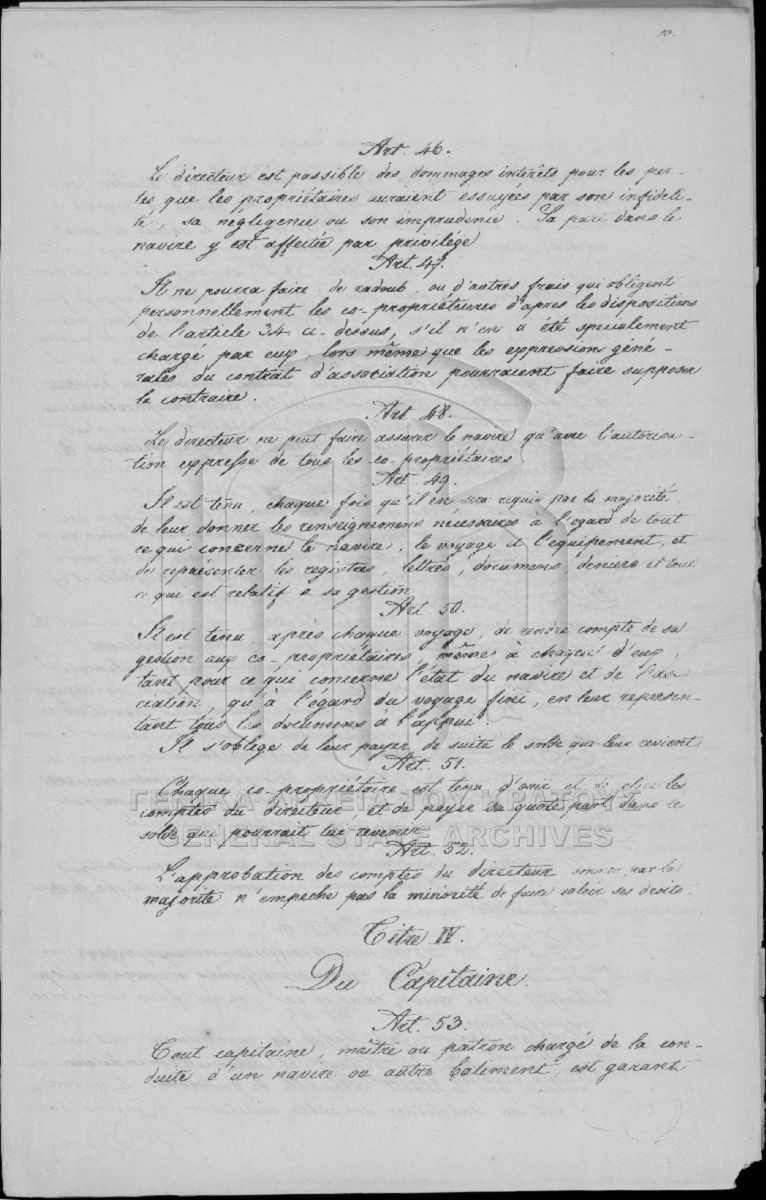 10.
Art. 46.
Le directeur est passible des dommages intérêts pour les per-
tes que les propriétaires auraient essuyées par son infidéli-
té, sa négligence ou son imprudence. Sa part dans le
navire y est affectée par privilége
Art. 47.
Il ne pourra faire de radoub, ou d'autres frais qui obligent
personnellement les co-propriétaires d'apres les dispositions
de l'article 34 ci-dessus, s'il n'en a été specialement
chargé par eux, lors même que les expressions géné-
rales du contrat d'association pourraient faire supposer
le contraire.
Art 48.
Le directeur ne peut faire assurer le navire qu'avec l'autorisa-
tion expresse de tous les co-propriétaires
Art. 49.
Il est tenu, chaque fois qu'il en sera requis par la majorité
de leur donner les renseignemens nécessaires à l'égard de tout
ce qui concerne le navire, le voyage et l'equipement, et
de représenter les registres, lettres, documens, deniers et tout
ce qui est relatif à sa gestion
Art. 50.
Il est tenu, après chaque voyage, de rendre compte de sa
gestion aux co-propriétaires, même à chaque d'eux,
tant pour ce qui concerne l'état du navire et de l'asso-
ciation, qu'à l'égard du voyage fini, en leur represen-
tant tous les documens à l'appui
Il s'oblige de leur payer de suite le solde qui leur revient
Art. 51.
Chaque co-propriétaire est tenu d'ouir et de clore les
comptes du directeur, et de payer sa quote part dans le
solde qui pourrait lui revenir
ΓΕΝΙΚΑ ΑΡΧΕΙΑ ΤΟΥ ΚΡΑΤΟΥΣ
GENERAL STATE ARCHIVES
Art. 52.
L'approbation des comptes du directeur donnée par la
majorité n'empeche pas la minorité de faire valoir ses droits.
Titre IV.
Du Capitaine.
Art. 53.
Tout capitaine, maître ou patron chargé de la con-
duite d'un navire ou autre batiment, est garant